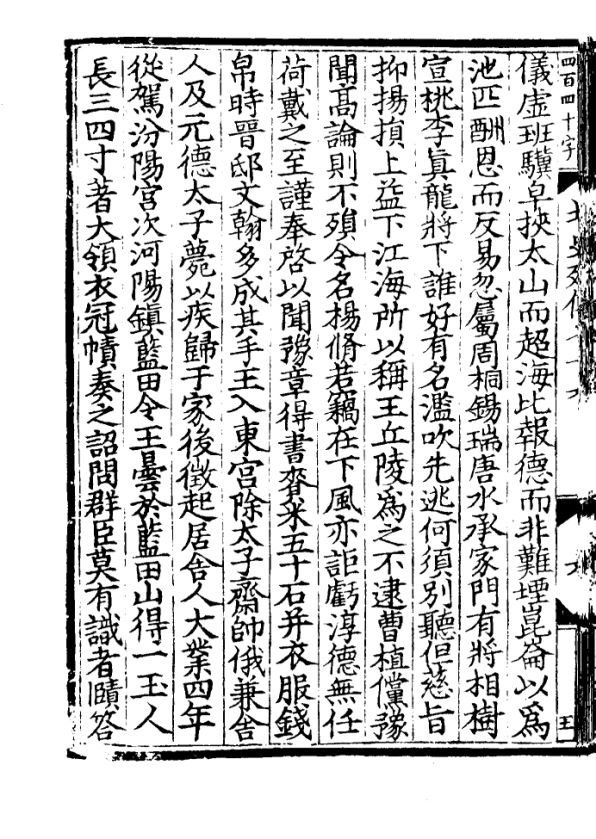 四百四十字
儀虛班驥皁挾太山而超海比報德而非難堙崑崙以爲
池匹酬恩而反易忽屬周桐錫瑞唐水承家門有將相樹
宣桃李眞龍將下誰好有名濫吹先逃何須別聽但慈旨
抑揚損上益下江海所以稱王丘陵爲之不逮曹植儻豫
聞髙論則不殞令名楊脩若竊在下風亦詎虧淳德無任
荷戴之至謹奉啓以聞豫章得書賚米五十石并衣服錢
帛時晉邸文翰多成其手王入東宮除太子齋帥俄兼舎
人及元德太子薨以疾歸于家後徵起居舎人大業四年
從駕汾陽宮次河陽鎮藍田令王曇於藍田山得一玉人
長三四寸著大領衣冠幘奏之詔問群臣莫有識者賾答